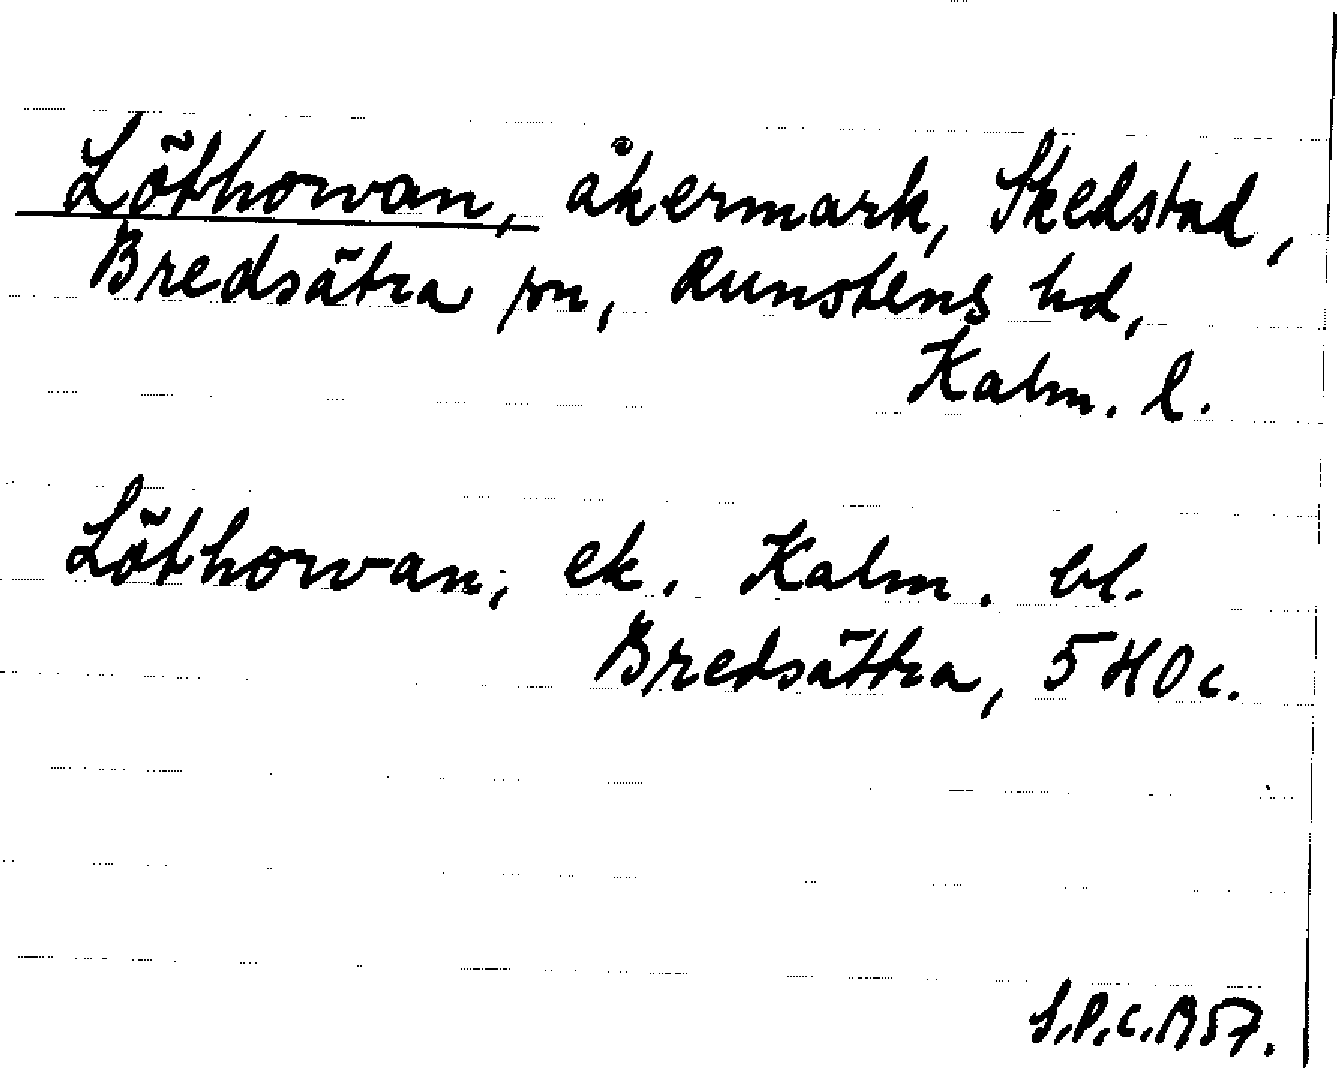 Löthorvan, åkermark, Skedstad,
Bredsätra sn, Runstens hd,
Kalm. l.
Löthorvan, ek. Kalm. bl.
Bredsättra, 5 H 0 c.
S.P.C. 1957.